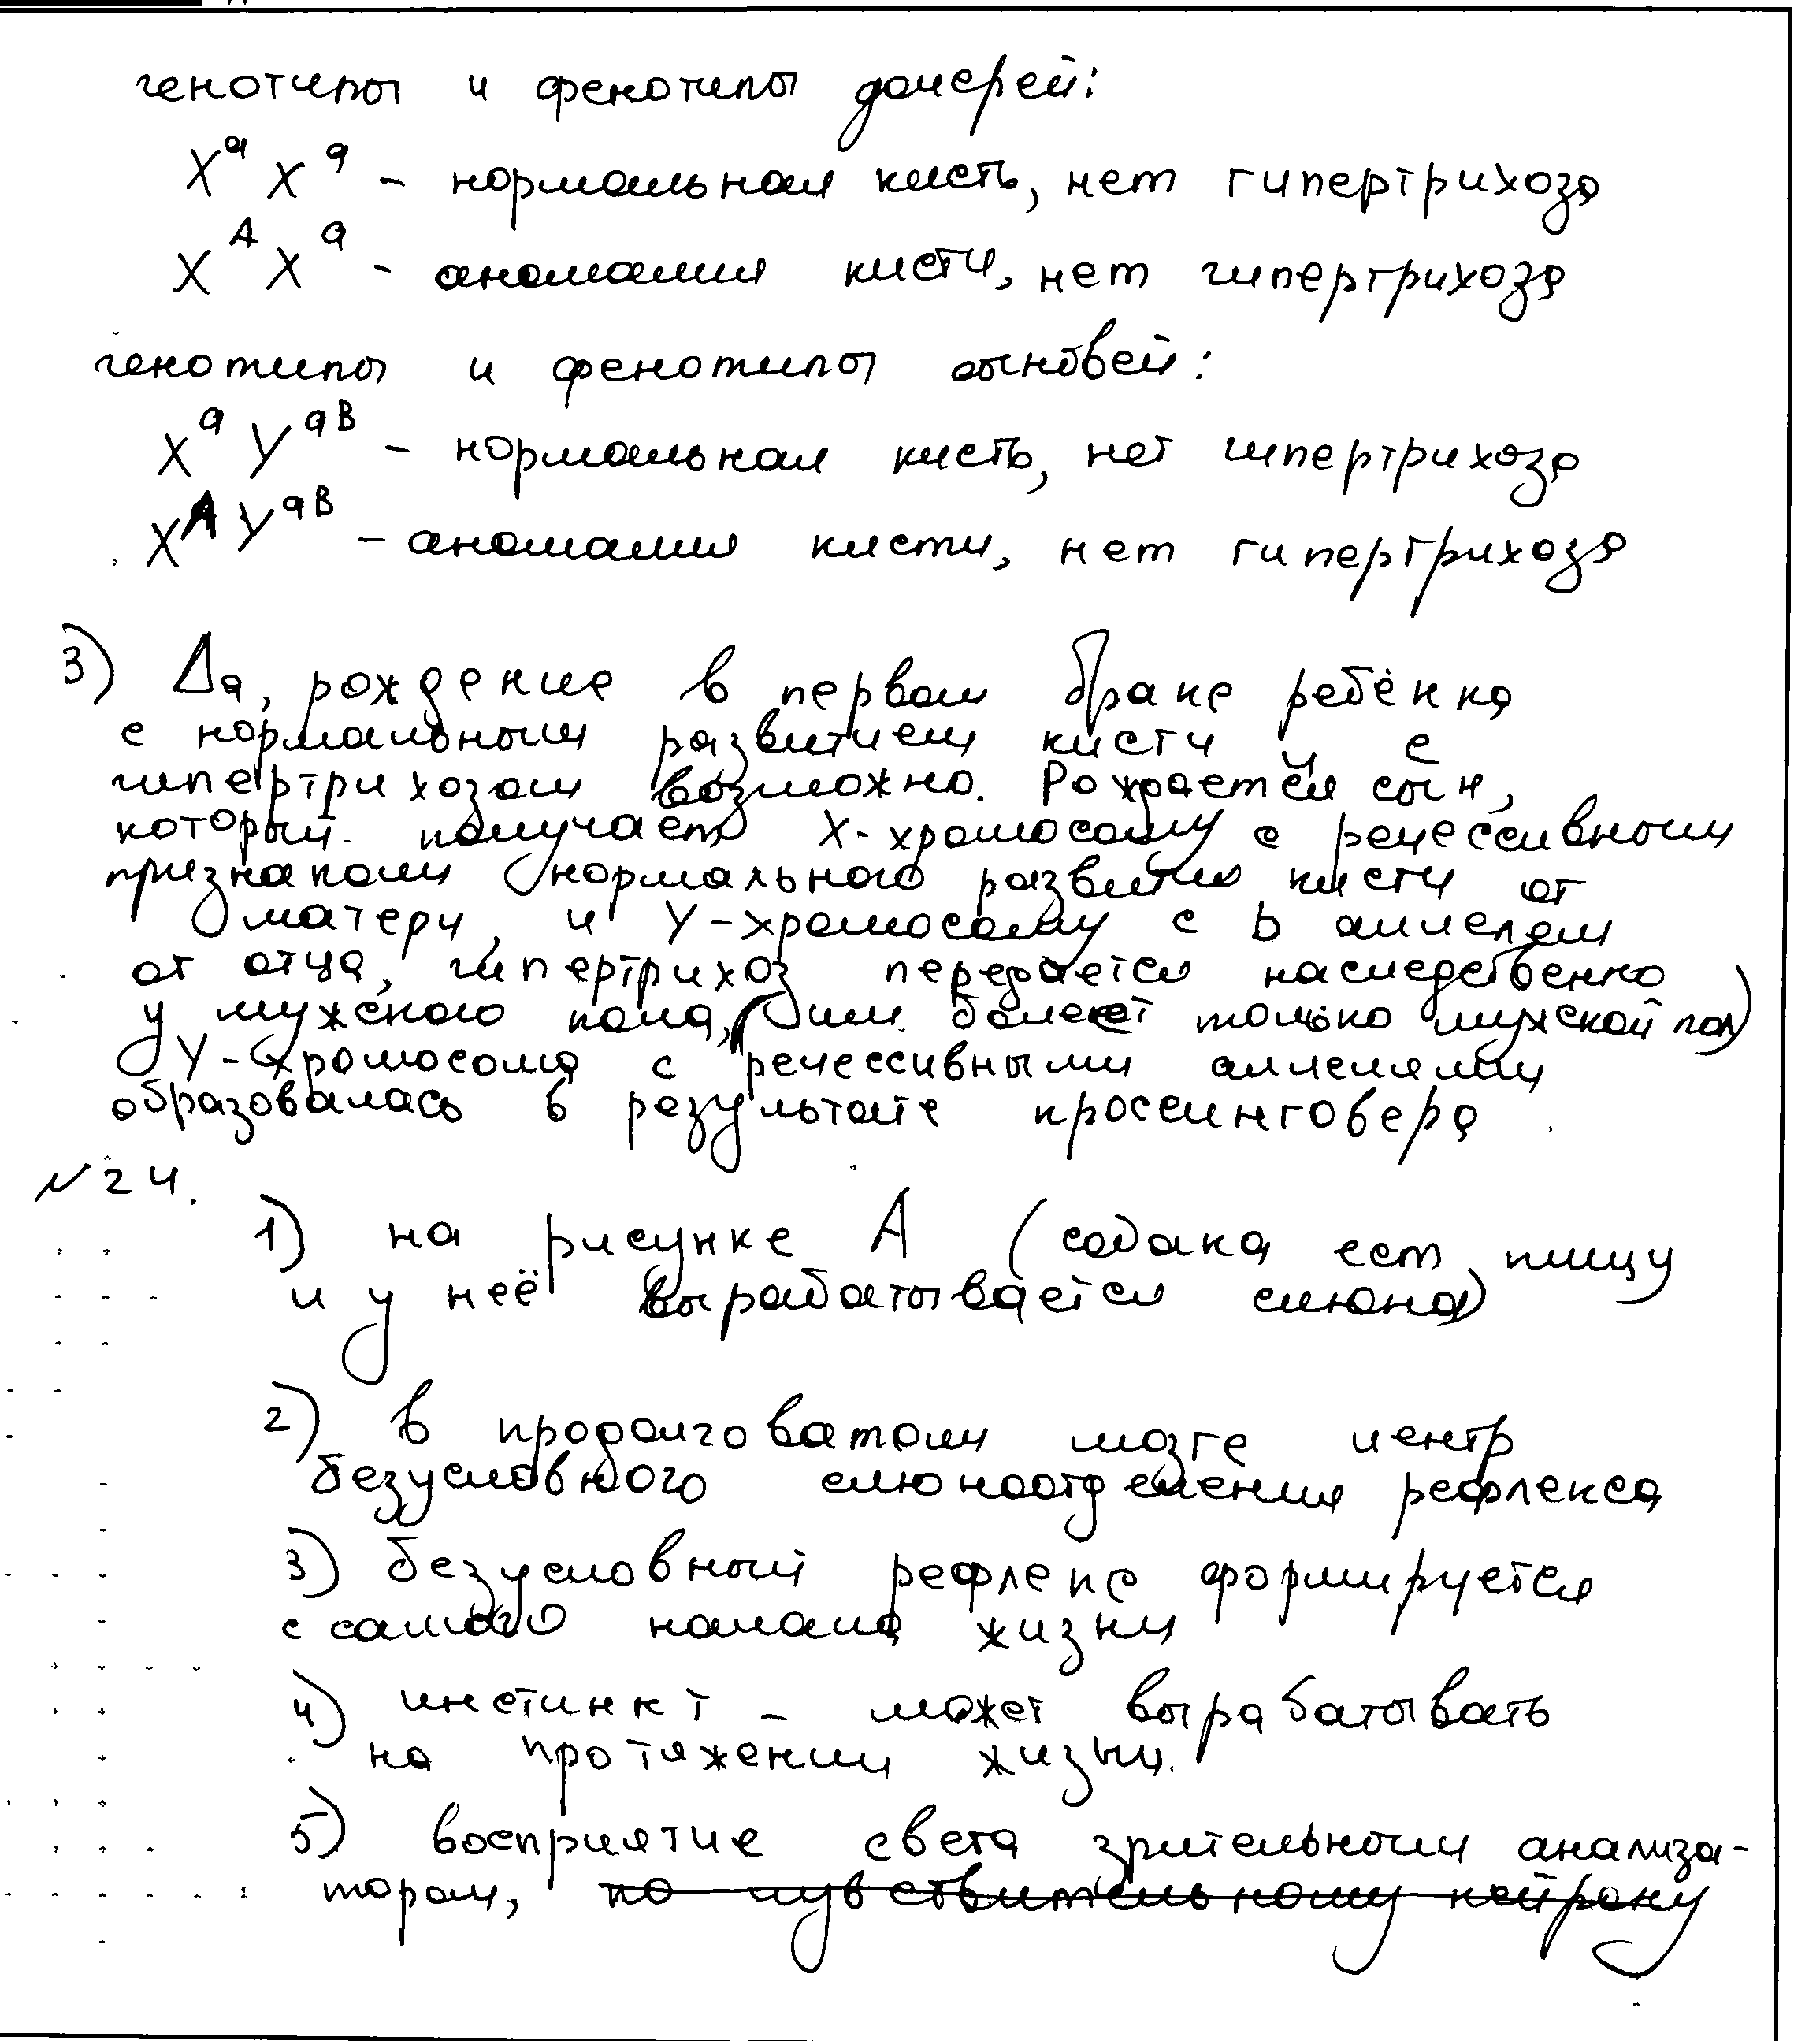 генотипы и фенотипы дочерей:
Xᵃ Xᵃ - нормальная кисть, нет гипертрихоза
Xᴬ Xᵃ - аномалия кисти, нет гипертрихоза
генотипы и фенотипы сыновей:
Xᵃ Yᵃᴮ - нормальная кисть, нет гипертрихоза
Xᴬ Yᵃᴮ - аномалия кисти, нет гипертрихоза
3) Да, рождение в первом браке ребёнка
с нормальным развитием кисти и с
гипертрихозом возможно. Рождается сын,
который получает X-хромосому с рецессивным
признаком нормального развития кисти от
матери, и Y-хромосому с b аллелем
от отца, гипертрихоз передается наследственно
у мужского пола, (им болеет только мужской пол)
Y-хромосома с рецессивными аллелями
образовалась в результате кроссинговера
№24.
1) на рисунке А (собака ест пищу
и у неё вырабатывается слюна)
2) в продолговатом мозге центр
безусловного слюноотделения рефлекса
3) безусловный рефлекс формируется
с самого начала жизни
4) инстинкт - может вырабатывать
на протяжении жизни.
5) восприятие света зрительным анализа-
тором, по чувствительному нейрону